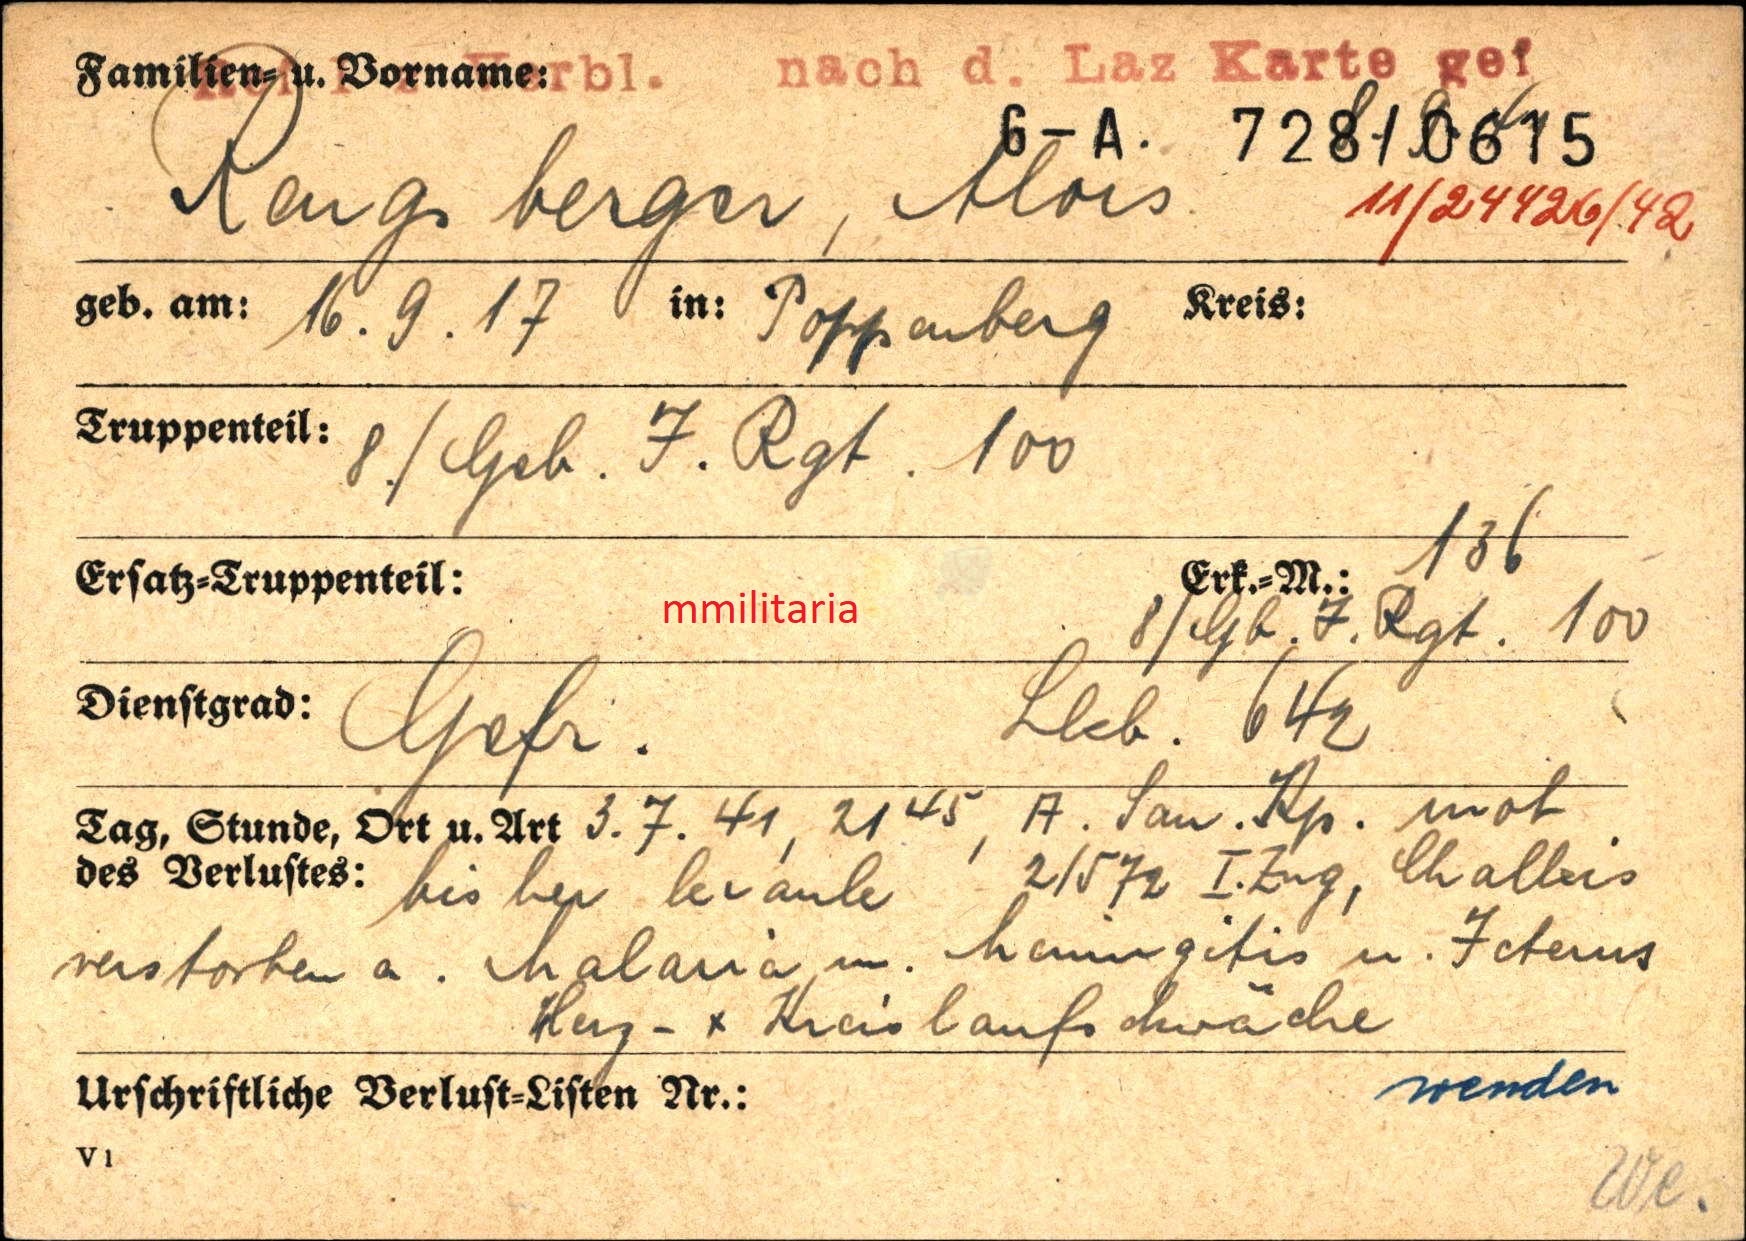 Verbl. nach d. Laz Karte gef
Familien- u. Vorname:
G-A. 728/0615
Rengsberger, Alois
11/24426/42
geb. am: 16. 9. 17 in: Poppenberg Kreis:
Truppenteil: 8./Geb. J. Rgt. 100
136
Ersatz-Truppenteil: Erk.-M.:
mmilitaria
8/Gb. J. Rgt. 100
Dienstgrad: Gefr. 642
Tag, Stunde, Ort u. Art 3. 7. 41, 21 45, A. San. Kp. mot
des Verlustes: bisher 2/572 I. Zug,
verstorben a. Malaria m. Meningitis u. Icterus
Herz- x Kreislaufschwäche
Urschriftliche Verlust-Listen Nr.: wenden
V 1
We.